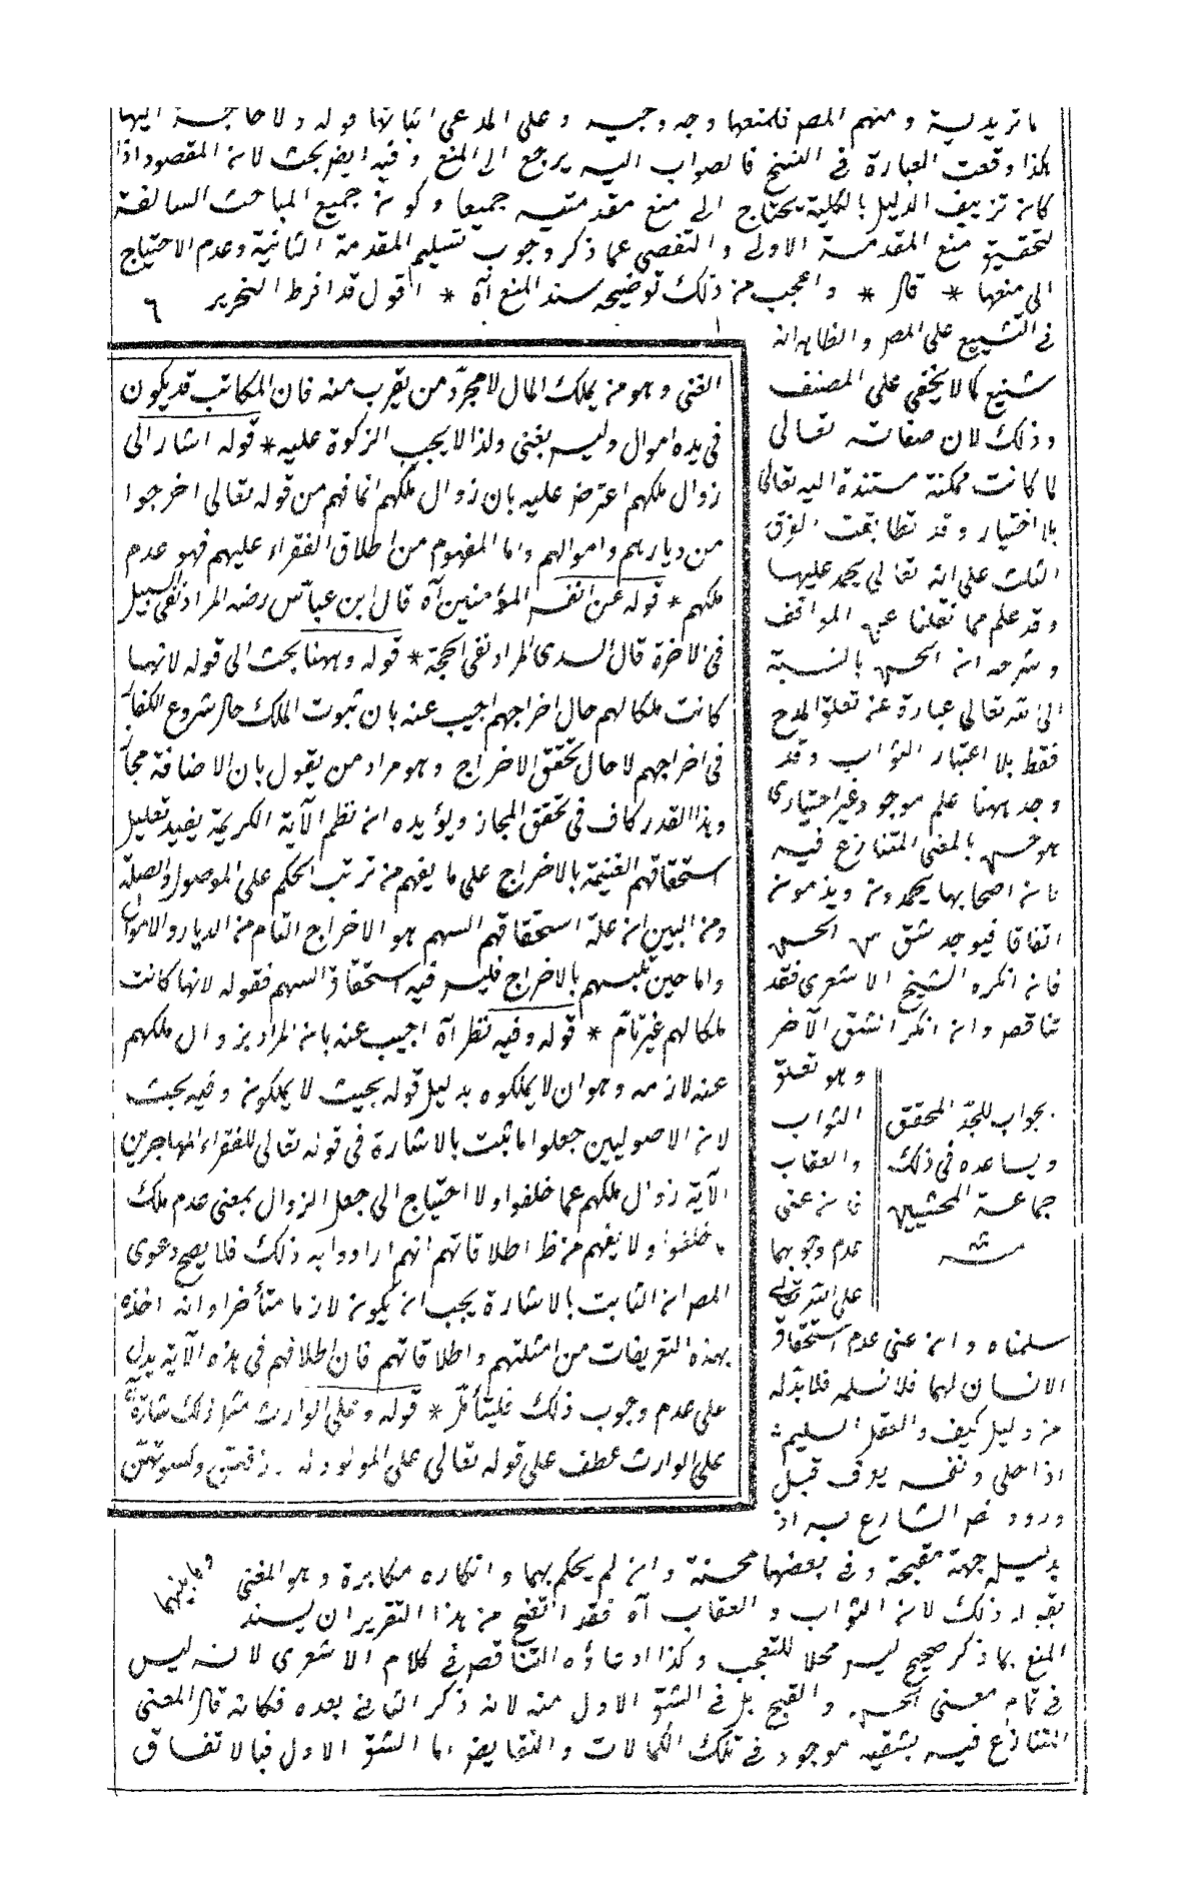 ماتريدية ومنهم المصر فلمنعها وجه وجيه وعلى المدعى اثباتها قوله ولا حاجة اليها
هكذا وقعت العبارة فى النسخ فالصواب اليه يرجع الى المنع وفيه ايضر بحث لان المقصود اذا
كان تزييف الدليل بالكلية يحتاج الى منع مقدمتيه جميعا وكون جميع المباحث السالفة
لتحقيق منع المقدمة الاولى والتفصى عما ذكر وجوب تسليم المقدمة الثانية وعدم الاحتياج
الى منعها * قال * واعجب من ذلك توضيحه سند المنع آه * اقول قد افرط النحرير ٦
فى التشنيع على المصر والظاهر انه
شنيع كما لا يخفى على المصنف
وذلك لان صفاته تعالى
لما كانت ممكنة مستندة اليه تعالى
بلا اختيار وقد تطابقت الفرق
الثلث على انه تعالى يحمد عليها
وقد علم مما نقلنا عن المواقف
وشرحه ان الحسن بالنسبة
الى الله تعالى عبارة عن تعلق المدح
فقط بلا اعتبار الثواب وقد
وجد ههنا علم موجود غير اختيارى
هو حسن بالمعنى المتنازع فيه
لان اصحابها يحمدون ويذمون
اتفاقا فيوجد شق من الحسن
فان انكره الشيخ الاشعرى فقد
تناقص وان انكر الشق الآخر
وهو تعلق
الثواب
والعقاب
فان عنى
عدم وجوبهما
على الله تعالى
سلمناه وان عنى عدم استحقاق
الانسان لهما فلا نسلمه فلا بد له
من دليل كيف والعقل السليم
اذا خلى ونفسه يعرف قبل
ورود نص الشارع به اذ
بجواب للجد المحقق
ويساعده فى ذلك
جماعة المحشيين
منه
بديهيه جهة مقبحة وفى بعضها محسنة وان لم يحكم بهما وانكاره مكابرة وهو المعنى
بقوله ذلك لان الثواب والعقاب آه فقد اتضح من هذا التقرير ان يسند
المنع بما ذكر صحيح ليس محلا للتعجب وكذا ادعاؤه التناقص فى كلام الاشعرى لانه ليس
فى تمام معنى الحسن والقبح بل فى الشق الاول منه لانه ذكر الثانى بعده فكانه قال المعنى
المتنازع فيه بشقيه موجود فى تلك الكمالات والنقايض اما الشق الاول فبالاتفاق
الغنى وهو من يملك المال لا مجرد من يقرب منه فان المكاتب قد يكون
فى يده اموال وليس بغنى ولذا لا يجب الزكوة عليه * قوله اشار الى
زوال ملكهم اعترض عليه بان زوال ملكهم انما فهم من قوله تعالى اخرجوا
من ديارهم واموالهم واما المفهوم من اطلاق الفقراء عليهم فهو عدم
ملكهم * قوله عن انفس المؤمنين آه قال ابن عباس رضه المراد نفى السبيل
فى الآخرة قال السدى المراد نفى الحجة * قوله وههنا بحث الى قوله لانها
كانت ملكا لهم حال اخراجهم اجيب عنه بان ثبوت الملك حال شروع الكفار
فى اخراجهم لا حال تحقق الاخراج وهو مراد من يقول بان الاضافة مجاز
وهذا القدر كاف فى تحقق المجاز ويؤيده ان نظم الآية الكريمة يفيد تعليل
استحقاقهم الغنيمة بالاخراج على ما يفهم من ترتب الحكم على الموصول والصلة
ومن البين ان علة استحقاقهم السهم هو الاخراج التام من الديار والاموال
واما حين تلبسهم بالاخراج فليس فيه استحقاق السهم فقوله لانها كانت
ملكا لهم غير تام * قوله وفيه نظر آه اجيب عنه بان المراد بزوال ملكهم
عنه لازمه وهو ان لا يملكوه بدليل قوله بحيث لا يملكون وفيه بحث
لان الاصوليين جعلوا ما ثبت بالاشارة فى قوله تعالى للفقراء المهاجرين
الآية زوال ملكهم عما خلفوا ولا احتياج الى جعل الزوال بمعنى عدم ملك
ما خلفوا ولا يفهم من اطلاقاتهم انهم ارادوا به ذلك فلا يصح دعوى
المصر ان الثابت بالاشارة يجب ان يكون لازما متأخرا وانه اخذه
بهذه التعريفات من امثلتهم واطلاقاتهم فان اطلاقهم فى هذه الآية يدل
على عدم وجوب ذلك فليتأمل * قوله وعلى الوارث مثل ذلك اشارة
على الوارث عطف على قوله تعالى على المولود له رزقهن وكسوتهن